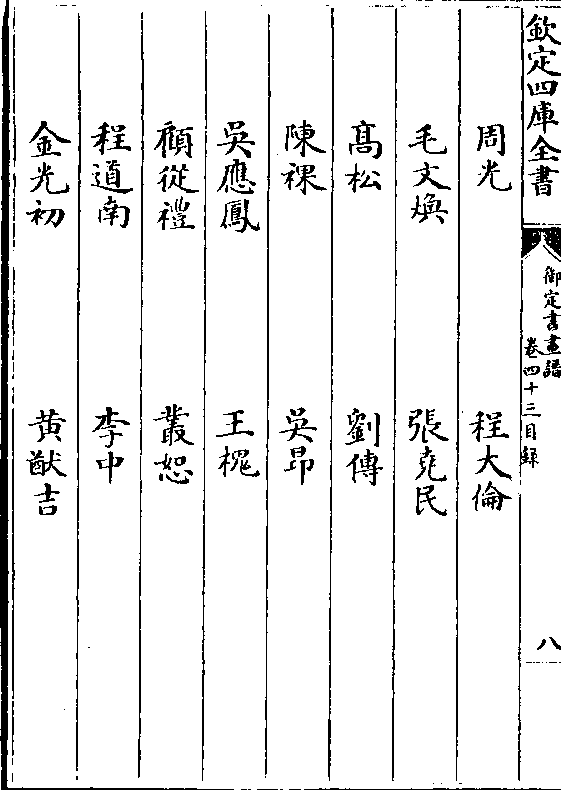 欽定四庫全書
御定書畫譜
卷四十三目録
八
周光 程大倫
毛文煥 張堯民
髙松 劉傳
陳祼 吳昂
吳應鳳 王榥
顧從禮 叢恕
程道南 李中
金光初 黃猷吉